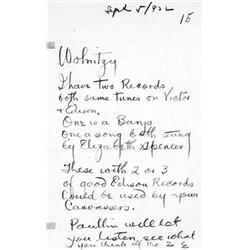 Sept 5/922
15
Wolnitzy
I have two Records
both same tunes on Victor
+ Edison.
One is a Banjo
One a song both sung
by Elizabeth Spencer
These with 2 or 3
of good Edison Records
Could be used by your
Canvassers.
Paulhin will let
you listen, see what
you think of the 2 E